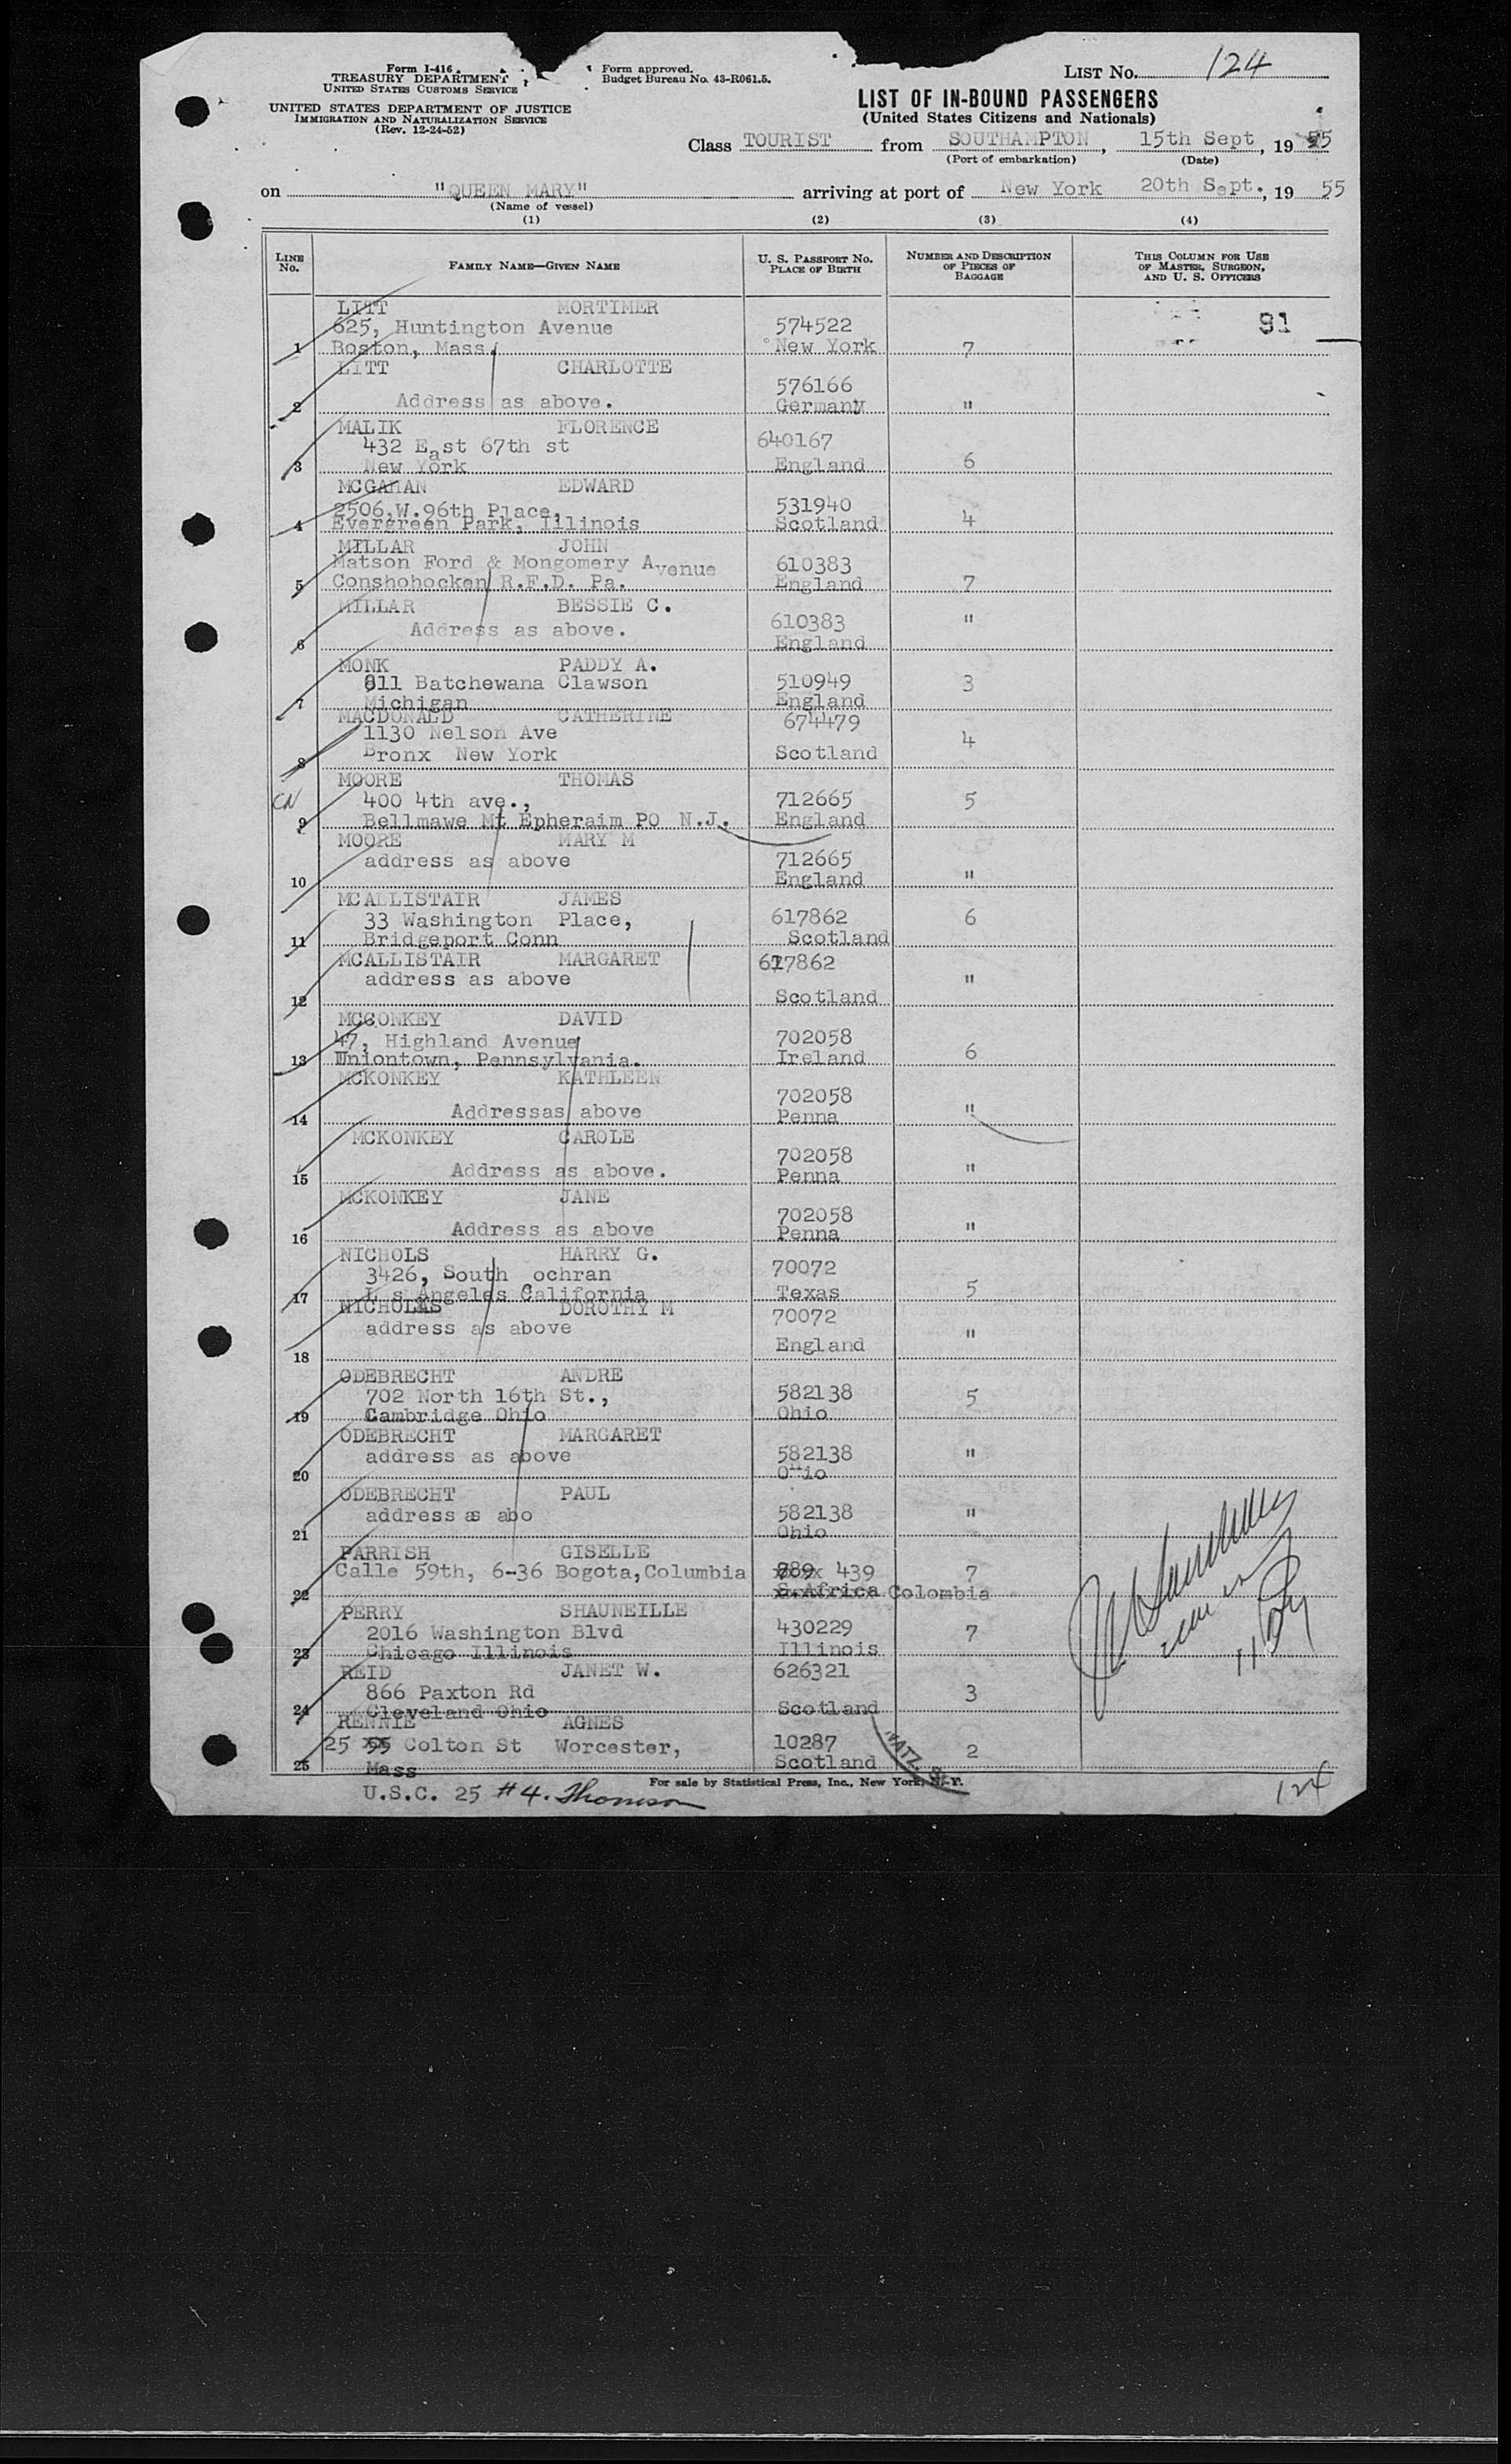 Form I-416
TREASURY DEPARTMENT
UNITED STATES CUSTOMS SERVICE
UNITED STATES DEPARTMENT OF JUSTICE
IMMIGRATION AND NATURALIZATION SERVICE
(Rev. 12-24-52)
Form approved.
Budget Bureau No. 43-R061.5.
LIST No. 124
LIST OF IN-BOUND PASSENGERS
(United States Citizens and Nationals)
Class TOURIST from SOUTHAMPTON, 15th Sept, 19 55
(Port of embarkation) (Date)
on "QUEEN MARY" arriving at port of New York 20th Sept., 19 55
(Name of vessel)
(1) (2) (3) (4)
LINE No. FAMILY NAME—GIVEN NAME U. S. PASSPORT No. PLACE OF BIRTH NUMBER AND DESCRIPTION OF PIECES OF BAGGAGE THIS COLUMN FOR USE OF MASTER, SURGEON, AND U. S. OFFICERS
LITT MORTIMER
625, Huntington Avenue 574522 91
1 Boston, Mass. New York 7
LITT CHARLOTTE
576166
2 Address as above. Germany "
MALIK FLORENCE
432 East 67th st 640167
3 New York England 6
MCGAHAN EDWARD
2506,W.96th Place, 531940
4 Evergreen Park, Illinois Scotland 4
MILLAR JOHN
Matson Ford & Mongomery Avenue 610383
5 Conshohocken R.F.D. Pa. England 7
MILLAR BESSIE C.
Address as above. 610383 "
6 England
MONK PADDY A.
811 Batchewana Clawson 510949 3
7 Michigan England
MACDONALD CATHERINE 674479
1130 Nelson Ave 4
8 Bronx New York Scotland
MOORE THOMAS
CN 400 4th ave., 712665 5
9 Bellmawe Mt Epheraim PO N.J. England
MOORE MARY M
address as above 712665
10 England "
MCALLISTAIR JAMES
33 Washington Place, 617862 6
11 Bridgeport Conn Scotland
MCALLISTAIR MARGARET 617862
address as above "
12 Scotland
MCCONKEY DAVID
47, Highland Avenue 702058
13 Uniontown, Pennsylvania. Ireland 6
MCKONKEY KATHLEEN
702058
14 Addressas above Penna "
MCKONKEY CAROLE
702058
15 Address as above. Penna "
MCKONKEY JANE
702058
16 Address as above Penna "
NICHOLS HARRY G.
3426, South ochran 70072
17 L s Angeles California Texas 5
NICHOLAS DOROTHY M 70072
address as above "
18 England
ODEBRECHT ANDRE
702 North 16th St., 582138 5
19 Cambridge Ohio Ohio
ODEBRECHT MARGARET
address as above 582138 "
20 Ohio
ODEBRECHT PAUL
address as abo 582138 "
21 Ohio
PARRISH GISELLE
Calle 59th, 6-36 Bogota,Columbia 439 7
22 S.Africa Colombia
PERRY SHAUNEILLE
2016 Washington Blvd 430229 7
23 Chicago Illinois Illinois
REID JANET W. 626321
866 Paxton Rd 3
24 Cleveland Ohio Scotland
RENNIE AGNES
25 55 Colton St Worcester, 10287 2
25 Mass Scotland
For sale by Statistical Press, Inc., New York, N.Y.
U.S.C. 25 #4. Thomson
124